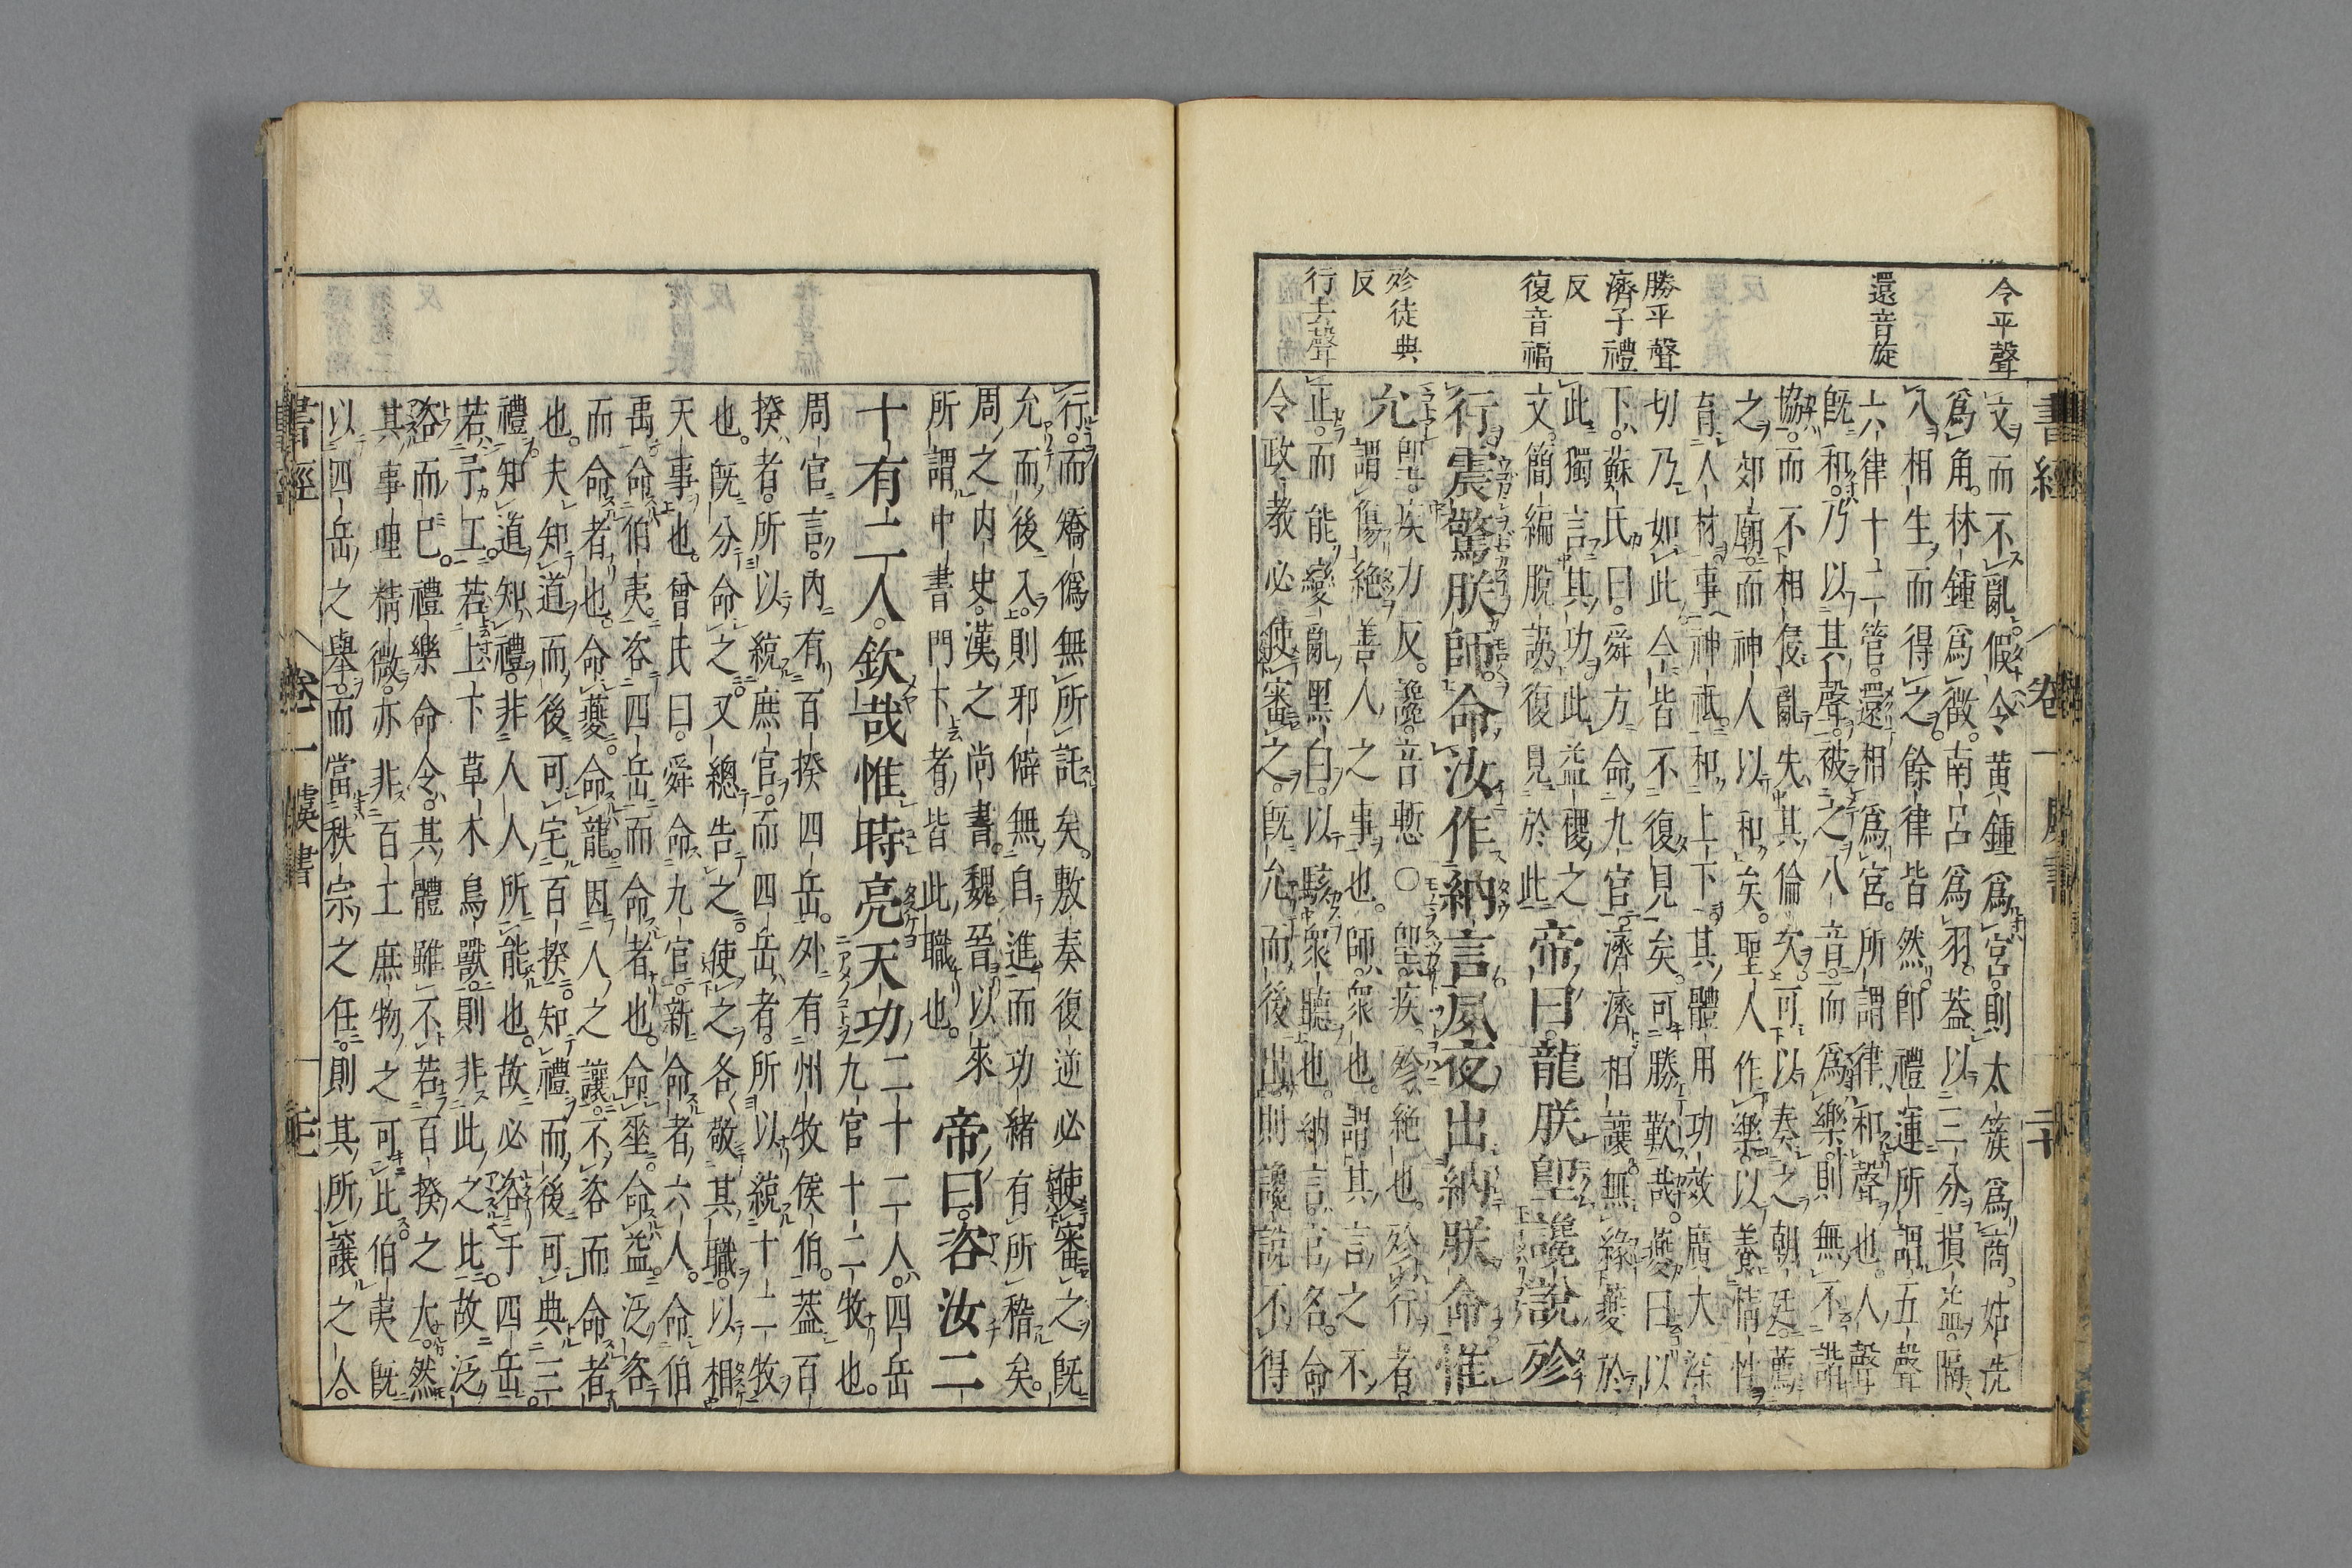 書經
卷一
虞書
二十
令平聲
還音旋
勝平聲
濟子禮
反
復音福
殄徒典
反
行去聲
文而不亂。假令黃鍾爲宮。則太簇爲商。姑洗
爲角。林鍾爲徵。南呂爲羽。蓋以三分損益。隔
八相生。而得之。餘律皆然。卽禮運所謂五聲
六律十二管。還相爲宮。所謂律和聲也。人聲
旣和。乃以其聲。被之八音。而爲樂。則無不諧
協。而不相侵亂失其倫次。可以奏之朝廷。薦
之郊廟。而神人以和矣。聖人作樂。以養情性
育人材。事神祇。和上下。其體用功效廣大深
切乃如此。今皆不復見矣。可勝歎哉。夔曰以
下。蘇氏曰。舜方命九官。濟濟相讓。無緣夔於
此獨言其功。此益稷之
文。簡編脫誤。復見於此
帝曰。龍朕堲讒說殄
行震驚朕師。命汝作納言夙夜出納朕命惟
允
堲。疾力反。讒。音慙○堲。疾。殄。絕也。殄行者
謂傷絕善人之事也。師。衆也。謂其言之不
正。而能變亂黑白。以駭衆聽也。納言。官名。命
令政教。必使審之。旣允而後出。則讒說不得
行。而矯僞無所託矣。敷奏復逆必使審之旣
允而後入。則邪僻無自進。而功緒有所稽矣。
周之内史。漢之尚書。魏晉以來
所謂中書門下者。皆此職也。
帝曰。咨汝二
十有二人。欽哉惟時亮天功
二十二人。四岳
九官十二牧也。
周官言。内有百揆四岳。外有州牧侯伯。蓋百
揆者。所以統庶官。而四岳者。所以統十二牧
也。旣分命之。又總告之。使之各敬其職。以相
天事也。曾氏曰。舜命九官。新命者六人。命伯
禹命伯夷。咨四岳而命者也。命垂命益。泛咨
而命者也。命夔命龍。因人之讓。不咨而命者
也。夫知道而後可宅百揆。知禮而後可典三
禮。知道知禮。非人人所能也。故必咨于四岳。
若予工。若上下草木鳥獸。則非此之比。故泛
咨而已。禮樂命令。其體雖不若百揆之大。然
其事理精微。亦非百工庶物之可比。伯夷旣
以四岳之舉。而當秩宗之任。則其所讓之人。
書經
卷一
虞書